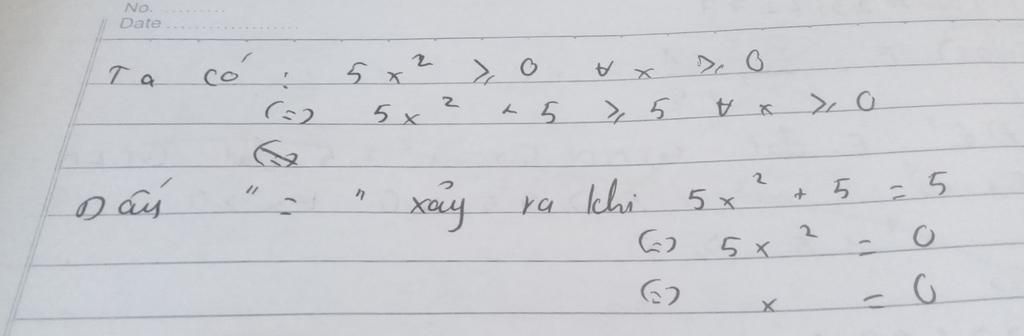 No. ............
Date ........................
Ta có : 5x² ≥ 0 ∀ x ≥ 0
(=) 5x² + 5 ≥ 5 ∀ x ≥ 0
Dấu "=" xảy ra khi 5x² + 5 = 5
(=) 5x² = 0
(=) x = 0